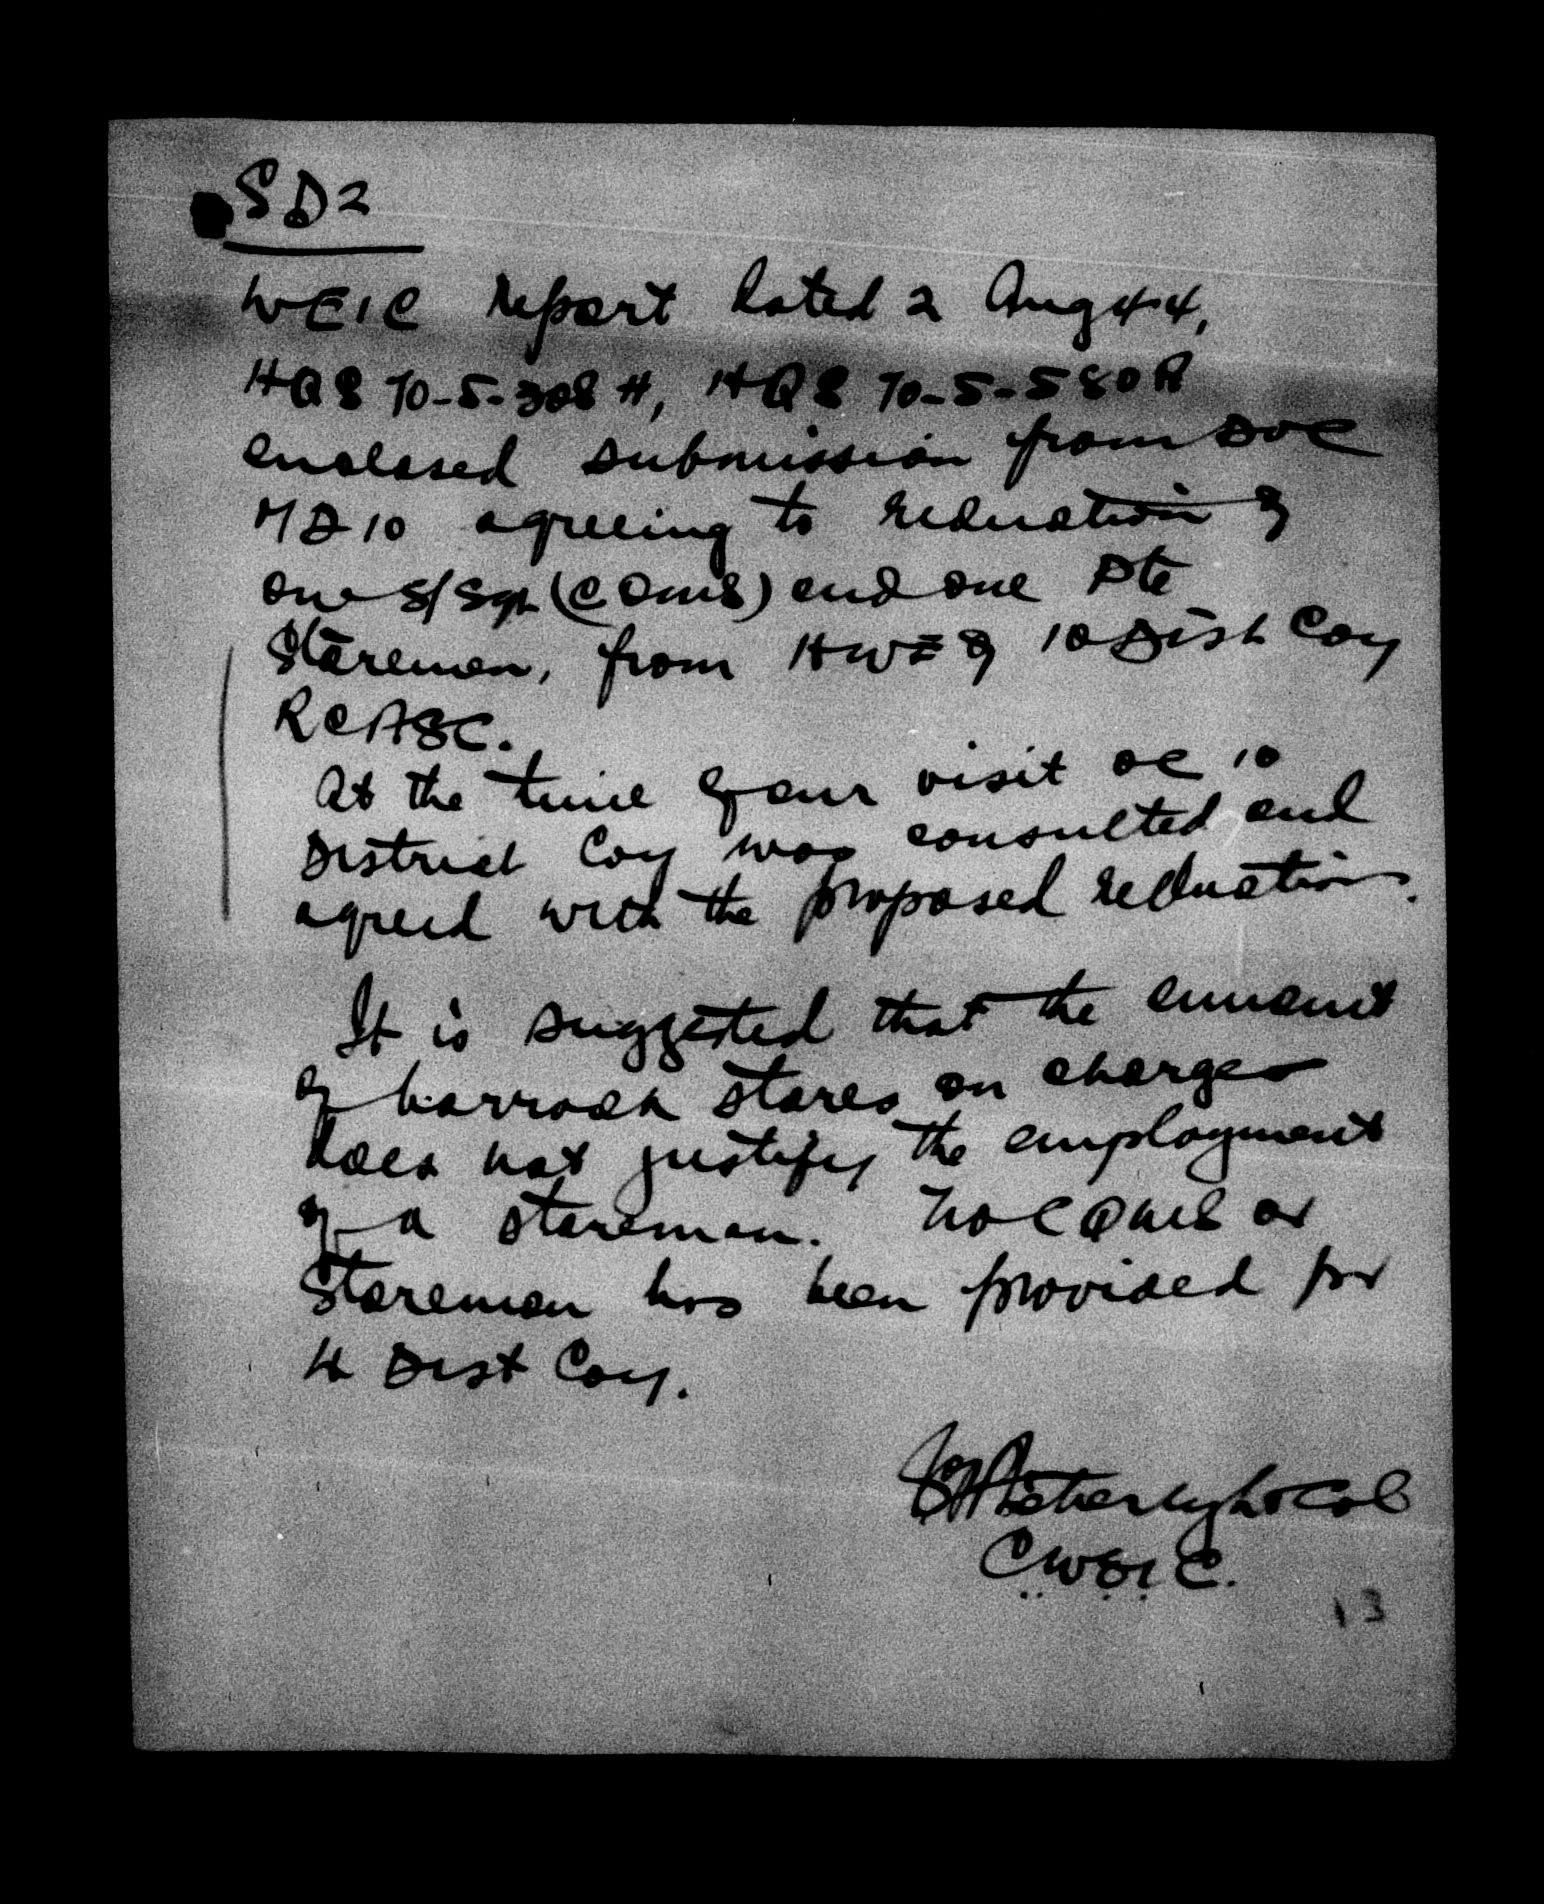 SD2
WEIC report dated 2 Aug 44,
HQS 70-5-308 H, HQS 70-5-580 R
enclosed submission from DOC
MD 10 agreeing to reduction of
one S/Sgt (CQMS) and one Pte
Storeman, from HWE of 10 Dist Coy
RCASC.
At the time of our visit OC 10
District Coy was consulted and
agreed with the proposed reduction.
It is suggested that the amount
of barrack stores on charge
does not justify the employment
of a storeman. No CQMS or
Storeman has been provided for
4 Dist Coy.
Col
CWEIC.
13